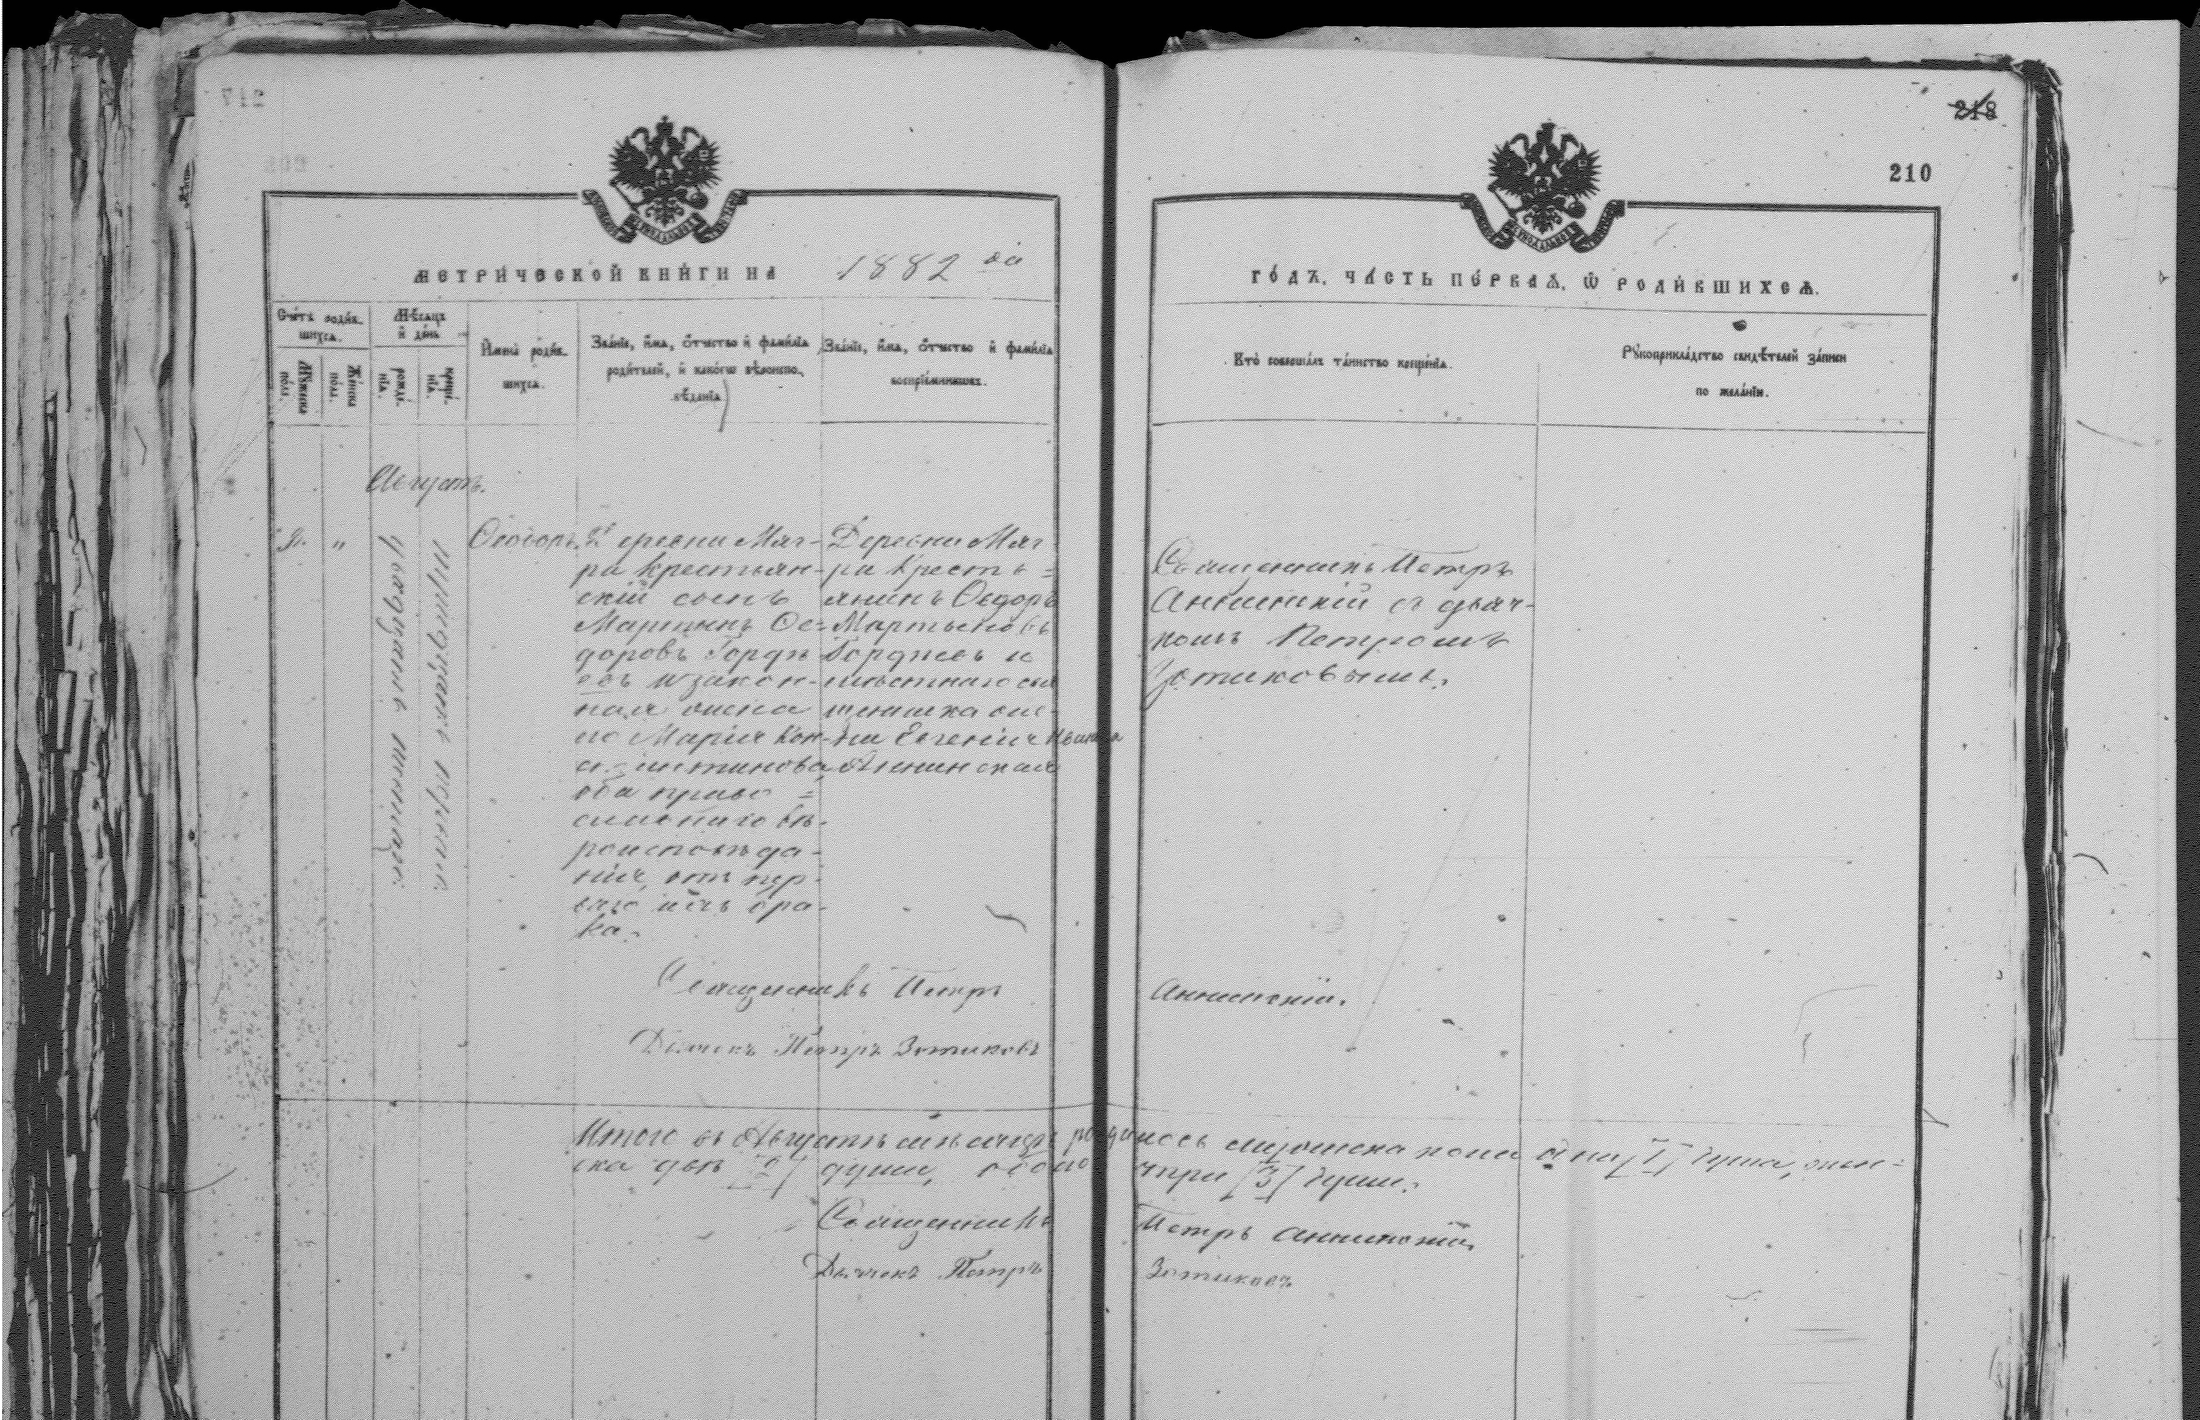 218
210
МЕТРИ́ЧЕСКОЙ КНИ́ГИ НА 1882 ой
ГО́ДЪ, ЧА́СТЬ ПЕ́РВАѦ, Ѿ РОДИ́ВШИХСѦ.
Сче́тъ роди́в-
шихсѧ.
Мѹ́жеска по́ла.
Же́нска по́ла.
Мѣ́сѧцъ
и҆ де́нь
рожде́-
нїѧ.
креще́-
нїѧ.
И҆́мена̀ роди́в-
шихсѧ.
Зва́нїе, и҆́мѧ, ѻ҆́тчество и҆ фами́лїѧ
роди́телей, и҆ како́гѡ вѣроиспо-
вѣ́данїѧ
Зва́нїе, и҆́мѧ, ѻ҆́тчество и҆ фами́лїѧ
воспрїе́мникѡвъ.
Кто̀ соверша́лъ та́инство креще́нїѧ.
Рѹкоприкла́дство свидѣ́телей за́писи
по жела́нїю.
Августъ.
„
двадцать
тридцать первого.
Ѳеодоръ.
Деревни Мяг-
ра крестьян-
скій сынъ
Мартынъ Ѳе-
доровъ Горди-
евъ и закон-
ная жена
его Марія Кон-
стантинова,
оба право-
славнаго вѣ-
роисповѣда-
нія, отъ пер-
ваго ихъ бра-
ка.
Деревни Мяг
ра кресть-
янинъ Ѳедоръ
Мартыновъ
Гордѣевъ и
мѣстнаго свя
щенника же-
на Евгенія
Аннинская
Священникъ Петръ
Аннинскій съ дьяч-
комъ Петромъ
Зотиковымъ.
Священникъ Петръ Аннинскій.
Дьячекъ Петръ Зотиковъ
Итого въ Августѣ мѣсяцѣ родилось мужеска пола одна [1] душа, жен-
ска двѣ [2] души, обоего три [3] души.
Священникъ Петръ Аннинскій.
Дьячекъ Петръ Зотиковъ